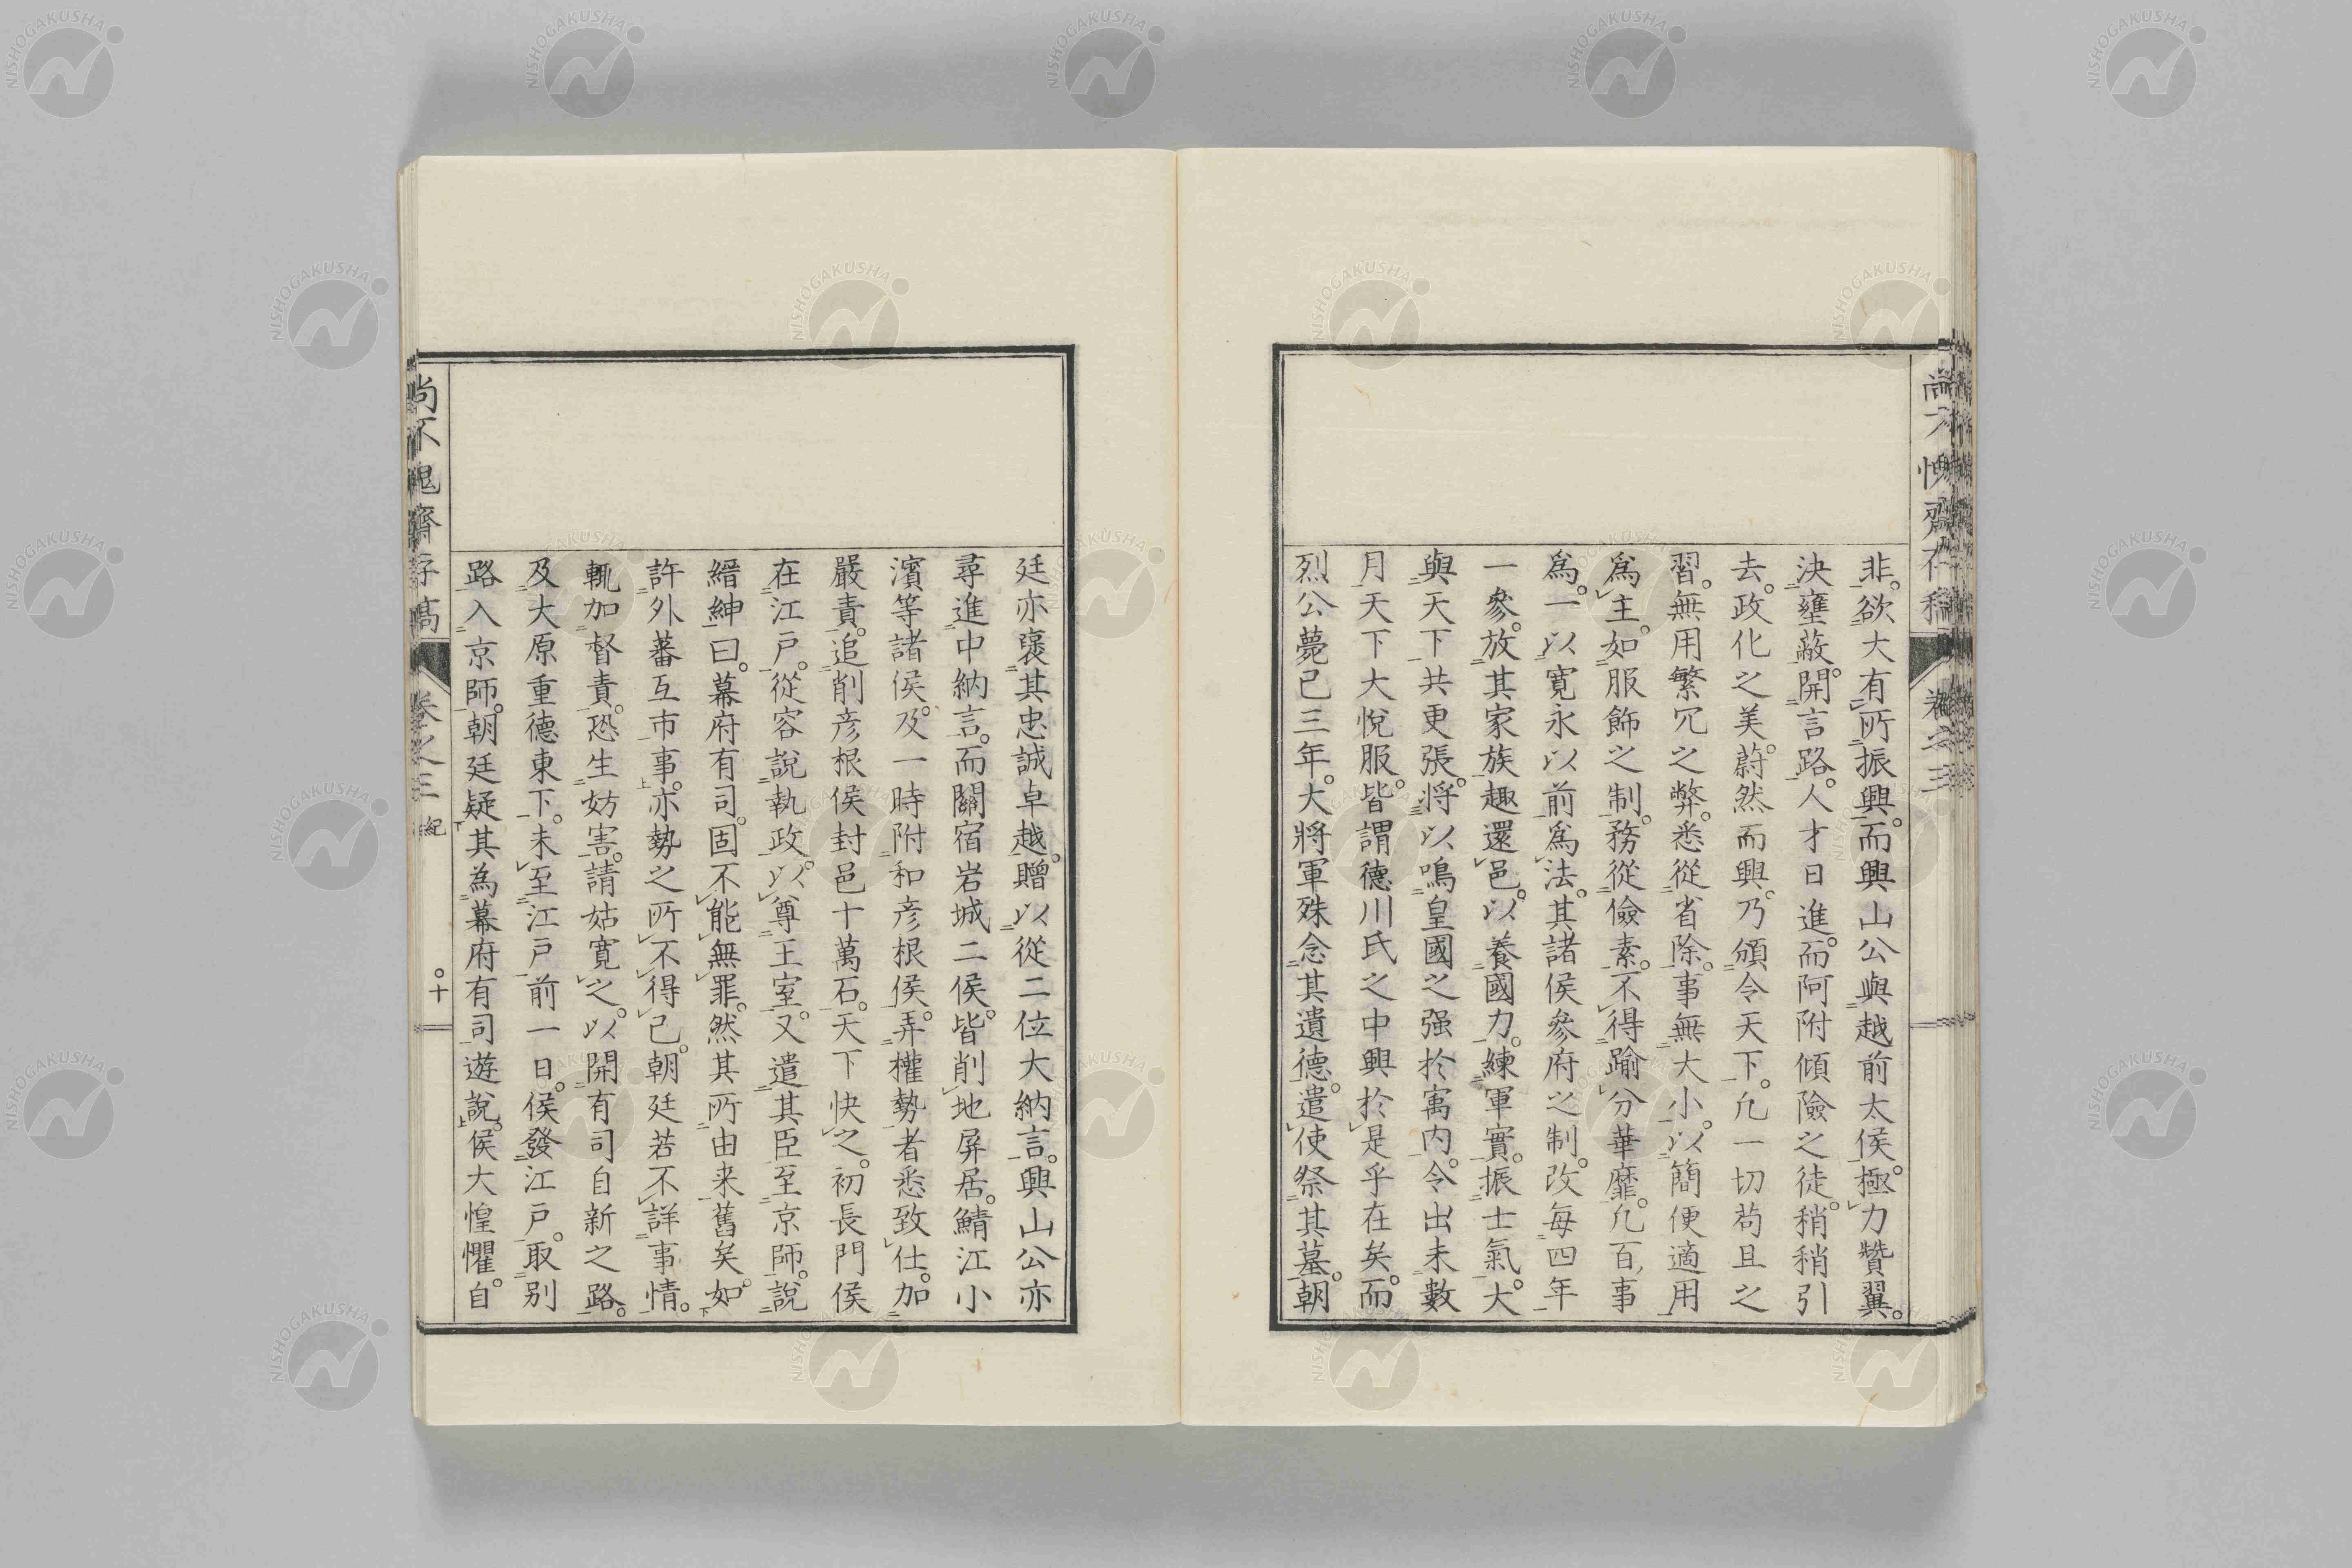 非。欲大有所振興。而興山公與越前太侯。極力贊翼。
決壅蔽。開言路。人才日進。而阿附傾險之徒。稍稍引
去。政化之美。蔚然而興。乃頒令天下。凢一切苟且之
習。無用繁冗之弊。悉從省除。事無大小。以簡便適用
爲主。如服飾之制。務從儉素。不得踰分華靡。凢百事
爲。一以寛永以前爲法。其諸侯參府之制。改每四年
一參。放其家族趣還邑。以養國力。練軍實。振士氣。大
與天下共更張。將以鳴皇國之强於寓內。令出未數
月。天下大悅服。皆謂德川氏之中興。於是乎在矣。而
烈公薨已三年。大將軍殊念其遺德。遣使祭其墓。朝
廷亦褒其忠誠卓越。贈以從二位大納言。興山公亦
尋進中納言。而關宿岩城二侯。皆削地屏居。鯖江小
濱等諸侯。及一時附和彦根侯。弄權勢者悉致仕。加
嚴責。追削彦根侯封邑十萬石。天下快之。初長門侯
在江戸。從容說執政。以尊王室。又遣其臣至京師。說
縉紳曰。幕府有司。固不能無罪。然其所由来舊矣。如
許外蕃互市事。亦勢之所不得已。朝廷若不詳事情。
輒加督責。恐生妨害。請姑寛之。以開有司自新之路。
及大原重德東下。未至江戸前一日。侯發江戸。取别
路入京師。朝廷疑其為幕府有司遊說。侯大惶懼。自
尚不愧齋存稿
卷之三
紀
十